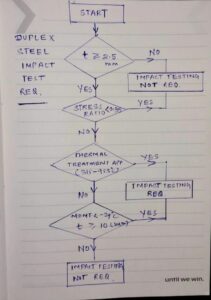 START
DUPLEX
STEEL
IMPACT
TEST
REQ.
t ≥ 2.5
mm
NO
IMPACT TESTING
NOT REQ.
YES
STRESS
RATIO
YES
NO
THERMAL
TREATMENT APP
YES
IMPACT TESTING
REQ
NO
t ≥ 10
YES
NO
IMPACT TESTING
NOT REQ
until we win.